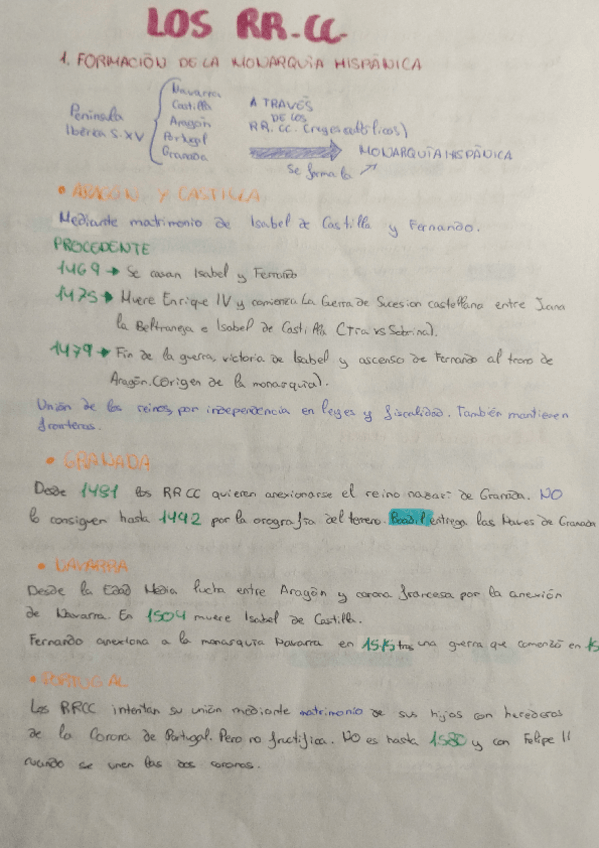 LOS RR.CC.
1. FORMACIÓN DE LA MONARQUÍA HISPÁNICA
Península
Ibérica S.XV
Navarra
Castilla
Aragón
Portugal
Granada
A TRAVÉS
DE LOS
RR.CC. (reyes católicos)
Se forma la
MONARQUÍA HISPÁNICA
• ARAGÓN Y CASTILLA
Mediante matrimonio de Isabel de Castilla y Fernando.
PROCEDENTE
1469 → Se casan Isabel y Fernando
1475 → Muere Enrique IV y comienza la Guerra de Sucesion castellana entre Juana
la Beltraneja e Isabel de Castilla (Tía vs Sobrina).
1479 → Fin de la guerra, victoria de Isabel y ascenso de Fernando al trono de
Aragón. (Origen de la monarquía).
Unión de los reinos, por independencia en leyes y fiscalidad. También mantienen
fronteras.
• GRANADA
Desde 1481 los RRCC quieren anexionarse el reino nazarí de Granada. NO
lo consiguen hasta 1492 por la orografía del terreno. Boadil entrega las llaves de Granada
• NAVARRA
Desde la Edad Media lucha entre Aragón y corona francesa por la anexión
de Navarra. En 1504 muere Isabel de Castilla.
Fernando anexiona a la monarquía Navarra en 1515 tras una guerra que comenzó en 15
• PORTUGAL
Los RRCC intentan su unión mediante matrimonio de sus hijas con herederos
de la Corona de Portugal. Pero no fructifica. NO es hasta 1580 y con Felipe II
cuando se unen las dos coronas.